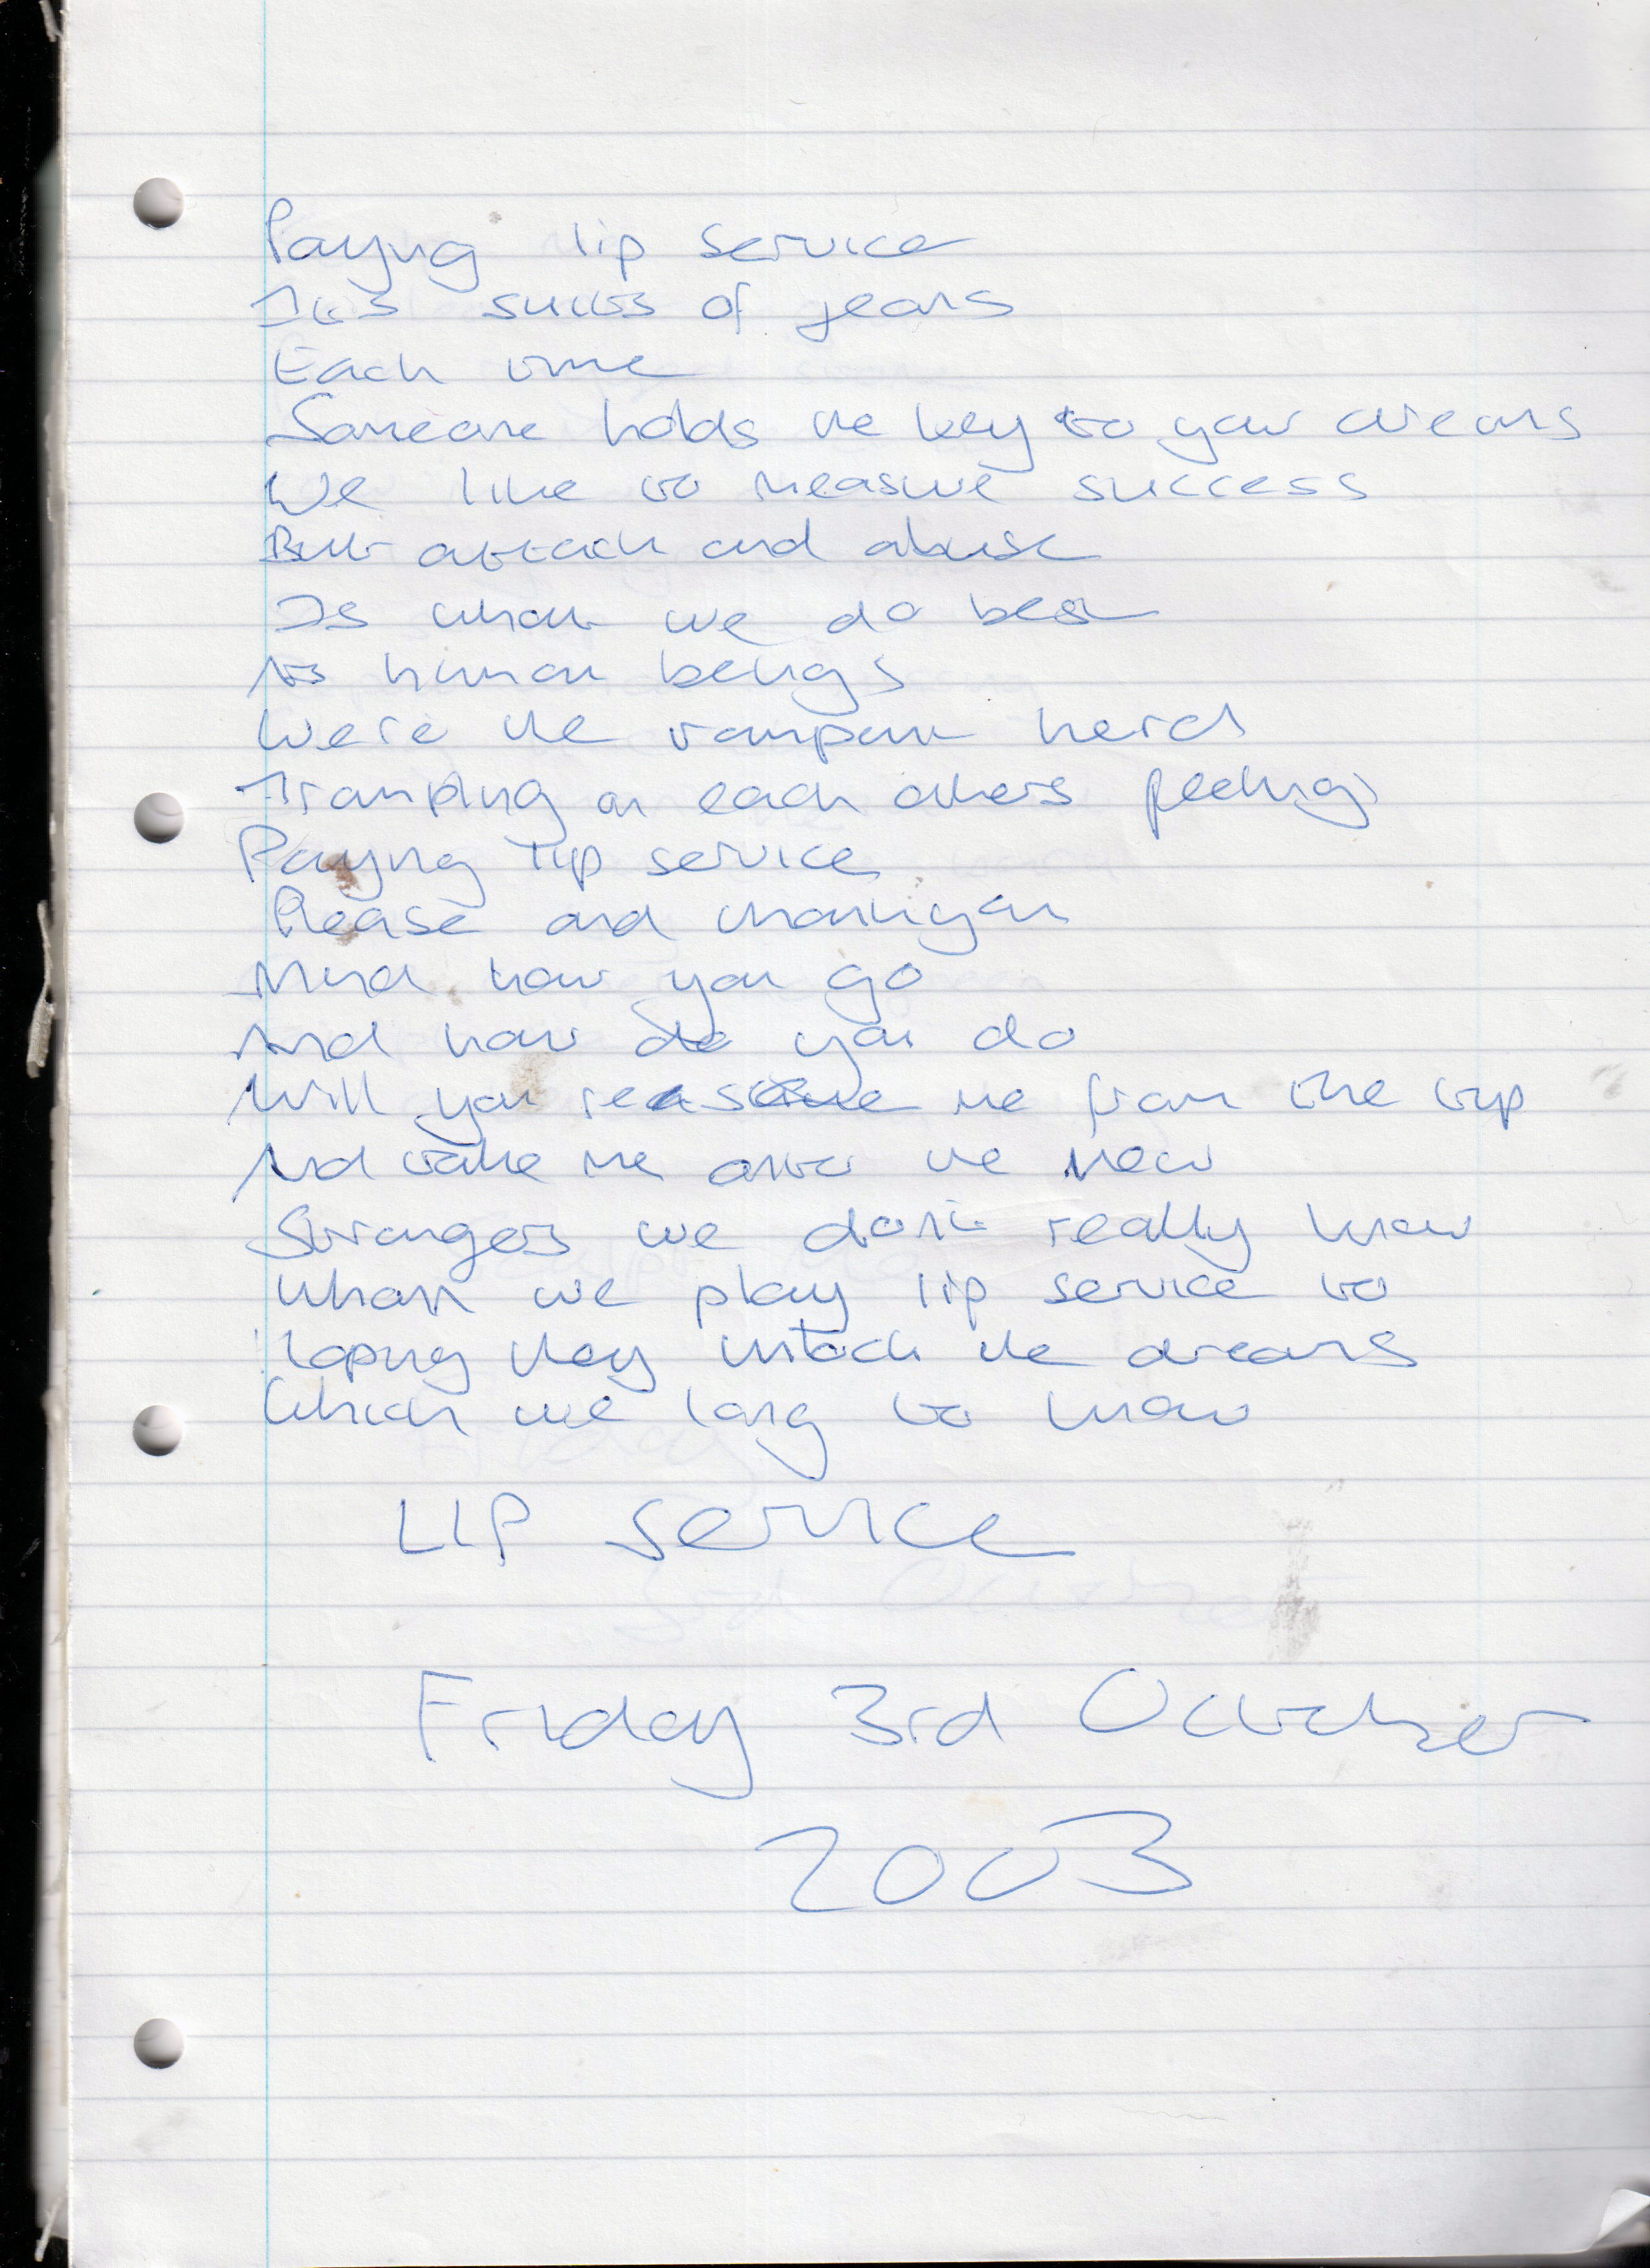 Paying lip service
It's of years
Each time
Someone holds the key to your dreams
We like to measure success
But attack and abuse
Is what we do best
As human beings
Were the rampant herd
Trampling on each others feelings
Paying lip service
Please and thankyou
Mind how you go
And how do you do
Will you me from the top
And take me onto the new
Strangers we don't really know
Whom we play lip service to
Hoping they unlock the dreams
Which we long to know
LIP Service
Friday 3rd October
2003